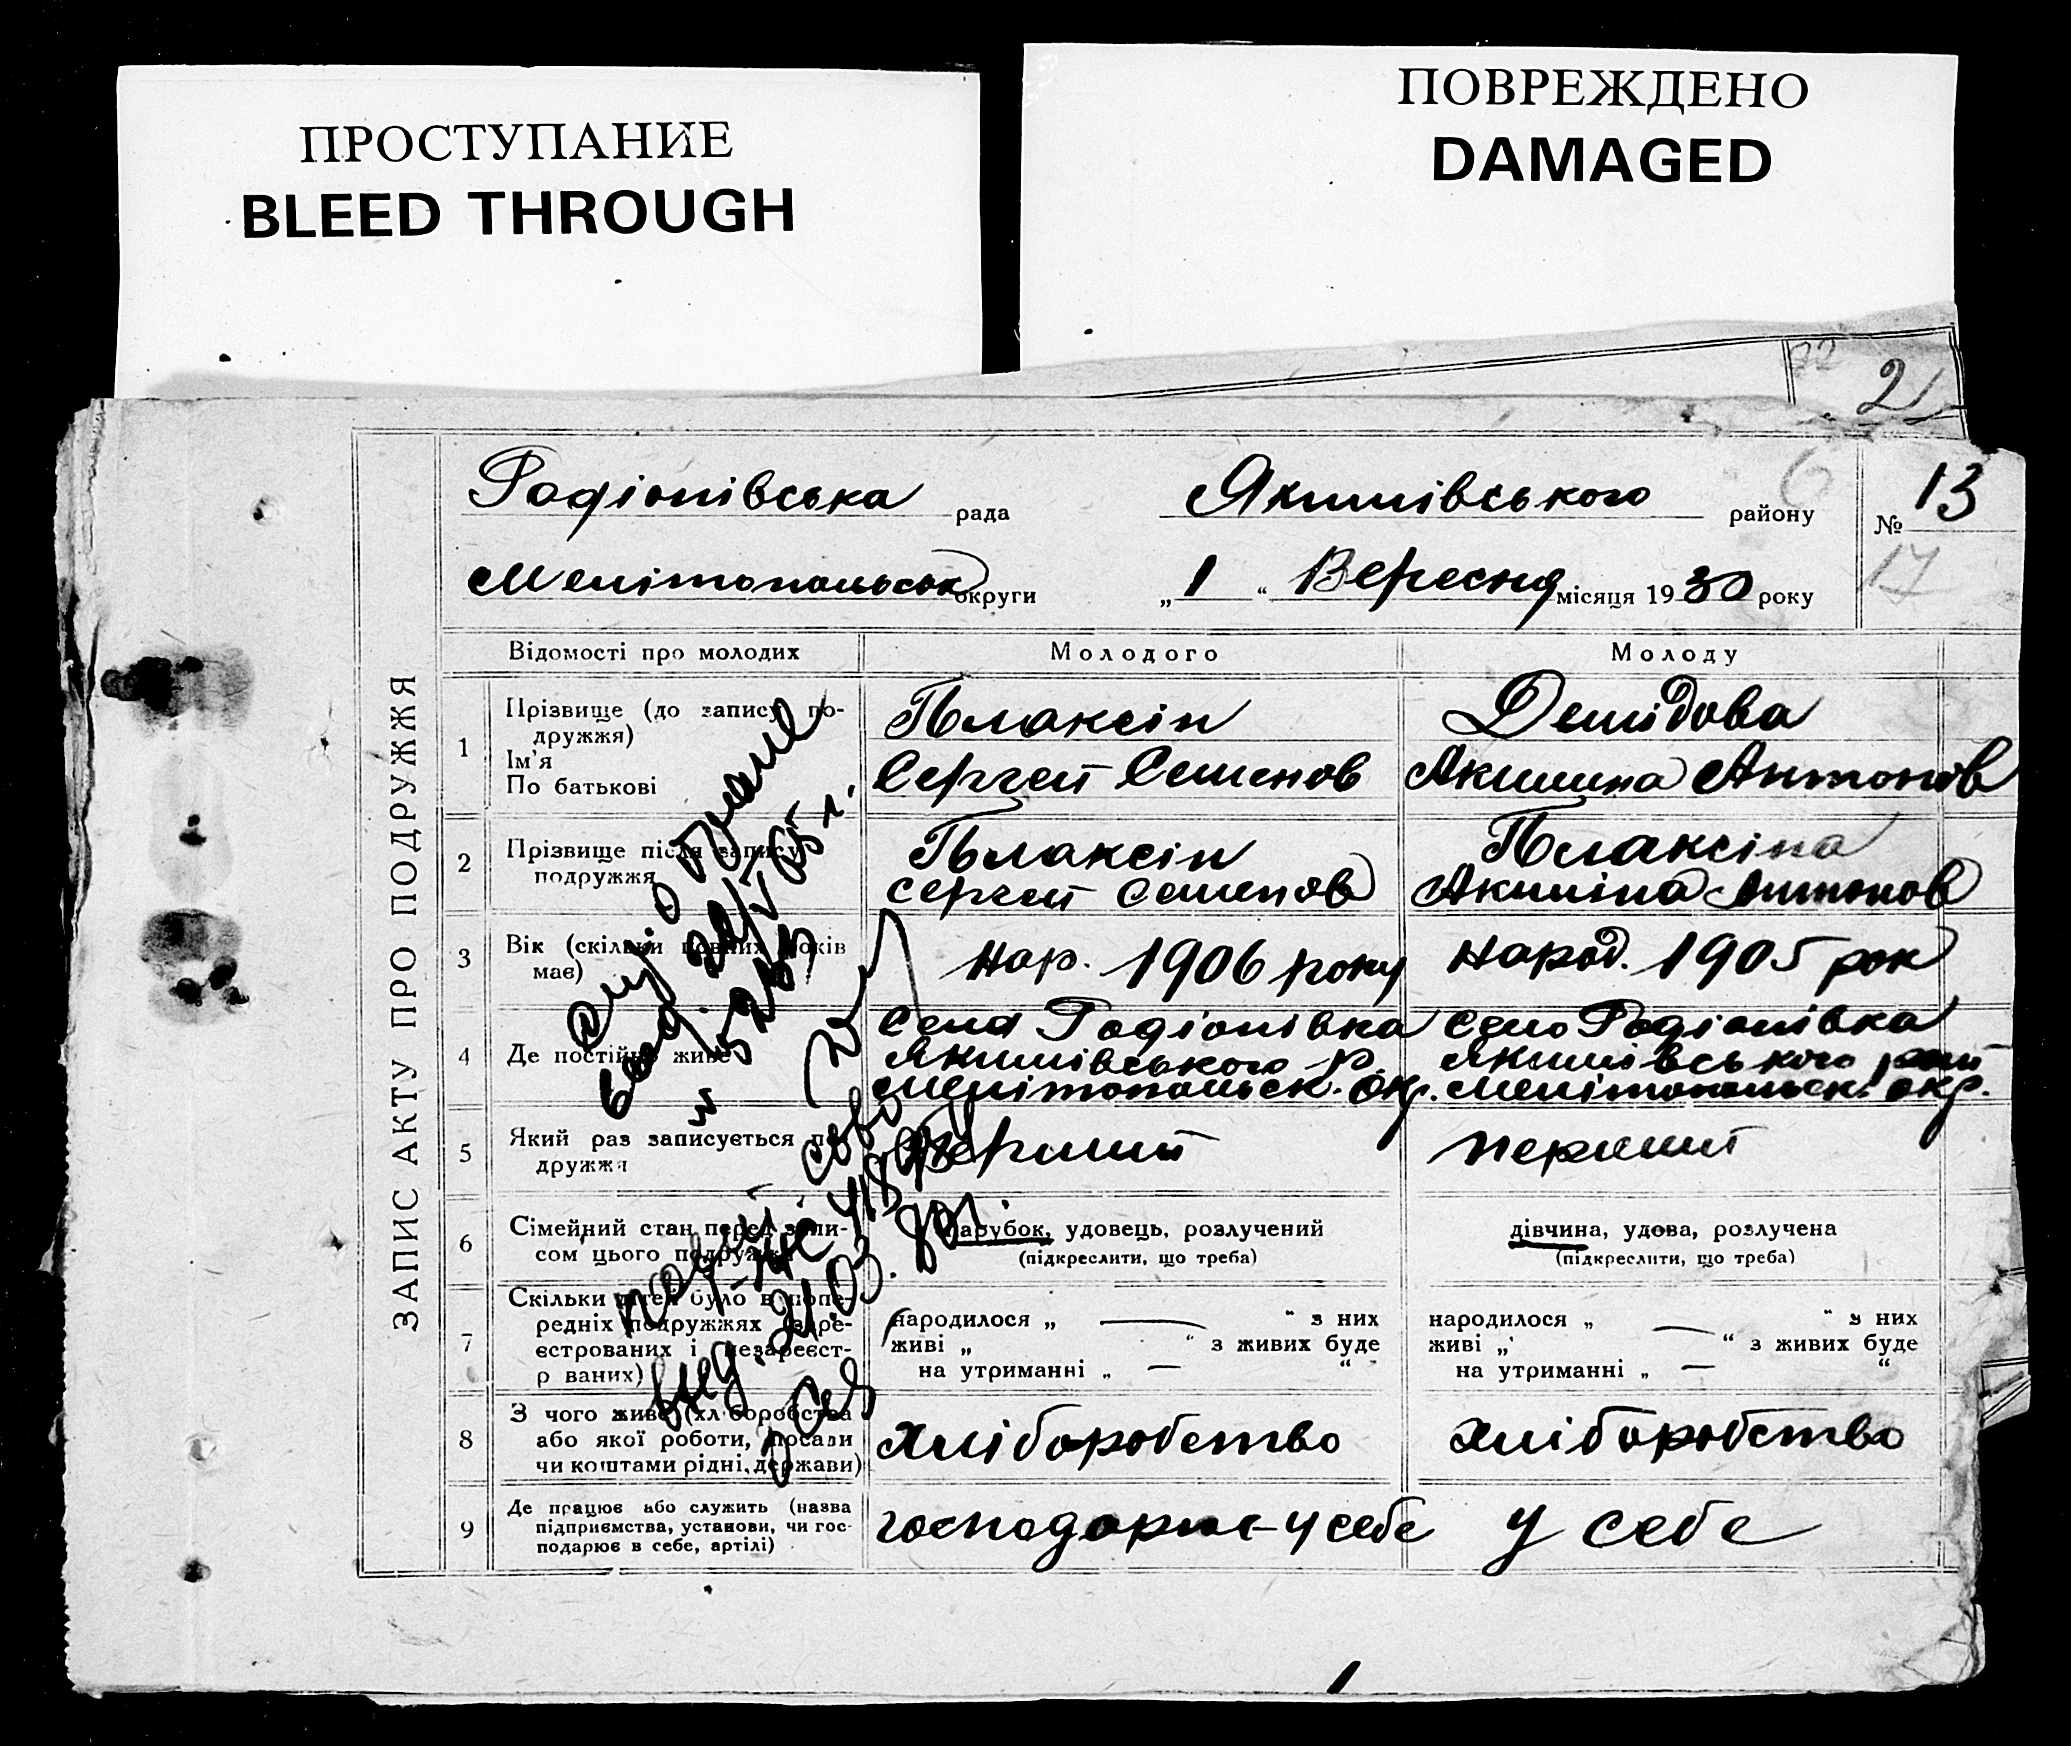 ПРОСТУПАНИЕ
BLEED THROUGH
ПОВРЕЖДЕНО
DAMAGED
2
ЗАПИС АКТУ ПРО ПОДРУЖЖЯ
Родіонівська рада Якимівського району № 13
6
Мелітопольськ округи „ 1 “ Вересня місяця 1930 року
17
Відомості про молодих Молодого Молоду
1 Прізвище (до запису по-
дружжя)
Ім'я
По батькові
Плаксін
Сергей Семенов
Демідова
Акимина Антонов
2 Прізвище після запису
подружжя
Плаксін
Сергей Семенов
Плаксіна
Акиміна Антонов
3 Вік (скільки повних років
має)
Нар. 1906 року
Народ. 1905 рок
4 Де постійно живе
Села Родіонівка
Якимівського р.
Мелітопольск. окр.
Село Родіонівка
Якимівського рай
Мелітопольск. окр.
5 Який раз записується по-
дружжя
Перший
перший
6 Сімейний стан перед запи-
сом цього подружжя
парубок, удовець, розлучений
(підкреслити, що треба)
дівчина, удова, розлучена
(підкреслити, що треба)
7 Скільки дітей було в попе-
редніх подружжях (заре-
єстрованих і незареєст-
р ваних)
народилося „ — “ з них
живі „ “ з живих буде
на утриманні „ — “
народилося „ — “ з них
живі „ “ з живих буде
на утриманні „ — “
8 З чого живе (хліборобства
або якої роботи, посади
чи коштами рідні, держави)
хліборобство
хліборобство
9 Де працює або служить (назва
підприємства, установи, чи гос-
подарює в себе, артілі)
господарює у себе
у себе
1